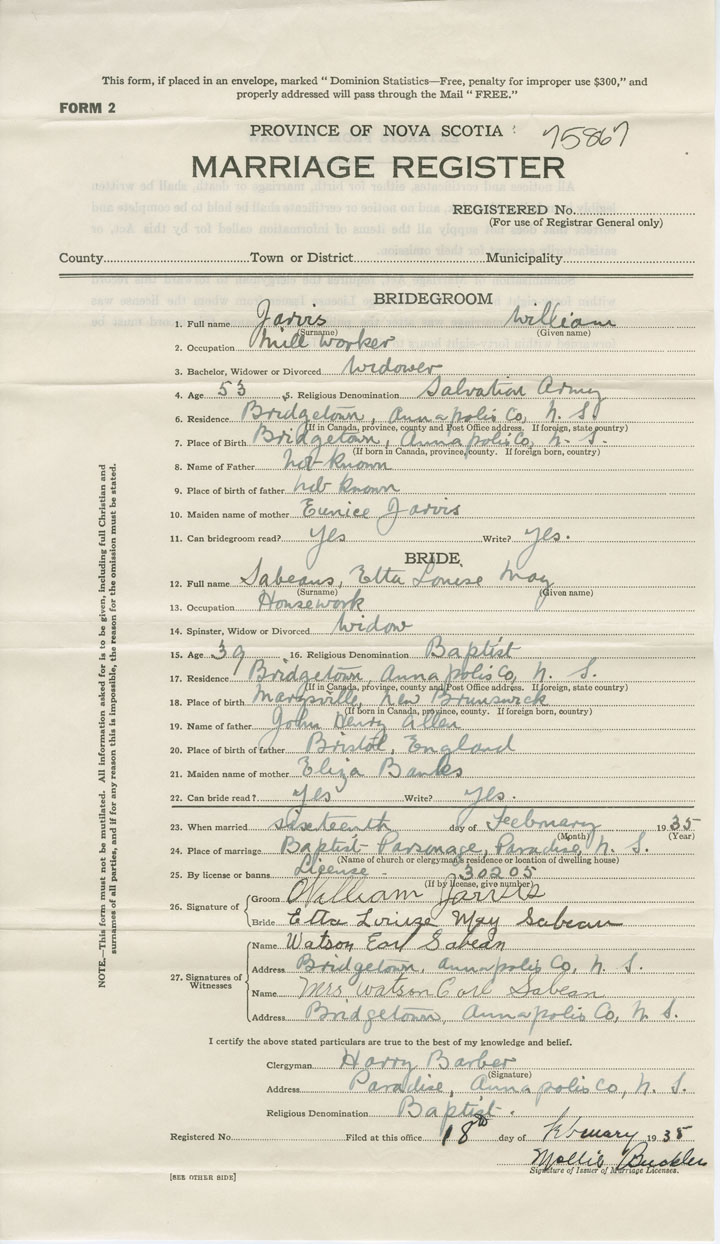 This form, if placed in an envelope, marked " Dominion Statistics—Free, penalty for improper use $300," and
properly addressed will pass through the Mail " FREE."
FORM 2
PROVINCE OF NOVA SCOTIA 75867
MARRIAGE REGISTER
REGISTERED No.
(For use of Registrar General only)
County Town or District Municipality
BRIDEGROOM
1. Full name Jarvis William
(Surname) (Given name)
2. Occupation Mill Worker
3. Bachelor, Widower or Divorced Widower
4. Age 53 5. Religious Denomination Salvation Army
6. Residence Bridgetown, Annapolis Co, N. S.
(If in Canada, province, county and Post Office address. If foreign, state country)
7. Place of Birth Bridgetown, Annapolis Co, N. S.
(If born in Canada, province, county. If foreign born, country)
8. Name of Father not known
9. Place of birth of father not known
10. Maiden name of mother Eunice Jarvis
11. Can bridegroom read? Yes Write? Yes.
BRIDE
12. Full name Sabeans, Etta Louise May
(Surname) (Given name)
13. Occupation Housework
14. Spinster, Widow or Divorced Widow
15. Age 39 16. Religious Denomination Baptist
17. Residence Bridgetown, Annapolis Co, N. S.
(If in Canada, province, county and Post Office address. If foreign, state country)
18. Place of birth Marysville, New Brunswick
(If born in Canada, province, county. If foreign born, country)
19. Name of father John Henry Allen
20. Place of birth of father Bristol, England
21. Maiden name of mother Eliza Banks
22. Can bride read? Yes Write? Yes.
23. When married sixteenth day of February 1935
(Month) (Year)
24. Place of marriage Baptist Parsonage, Paradise, N. S.
(Name of church or clergyman's residence or location of dwelling house)
25. By license or banns License - 30205
(If by license, give number)
26. Signature of Groom William Jarvis
Bride Etta Louize May Sabean
27. Signatures of Witnesses
Name Watson Earl Sabean
Address Bridgetown, Annapolis Co, N. S.
Name Mrs Watson Earl Sabean
Address Bridgetown, Annapolis Co, N. S.
I certify the above stated particulars are true to the best of my knowledge and belief.
Clergyman Harry Barber
(Signature)
Address Paradise, Annapolis Co, N. S.
Religious Denomination Baptist.
Registered No. Filed at this office 18th day of February 1935
Mollie Buckler
Signature of Issuer of Marriage Licenses.
[SEE OTHER SIDE]
NOTE.—This form must not be mutilated. All information asked for is to be given, including full Christian and
surnames of all parties, and if for any reason this is impossible, the reason for the omission must be stated.